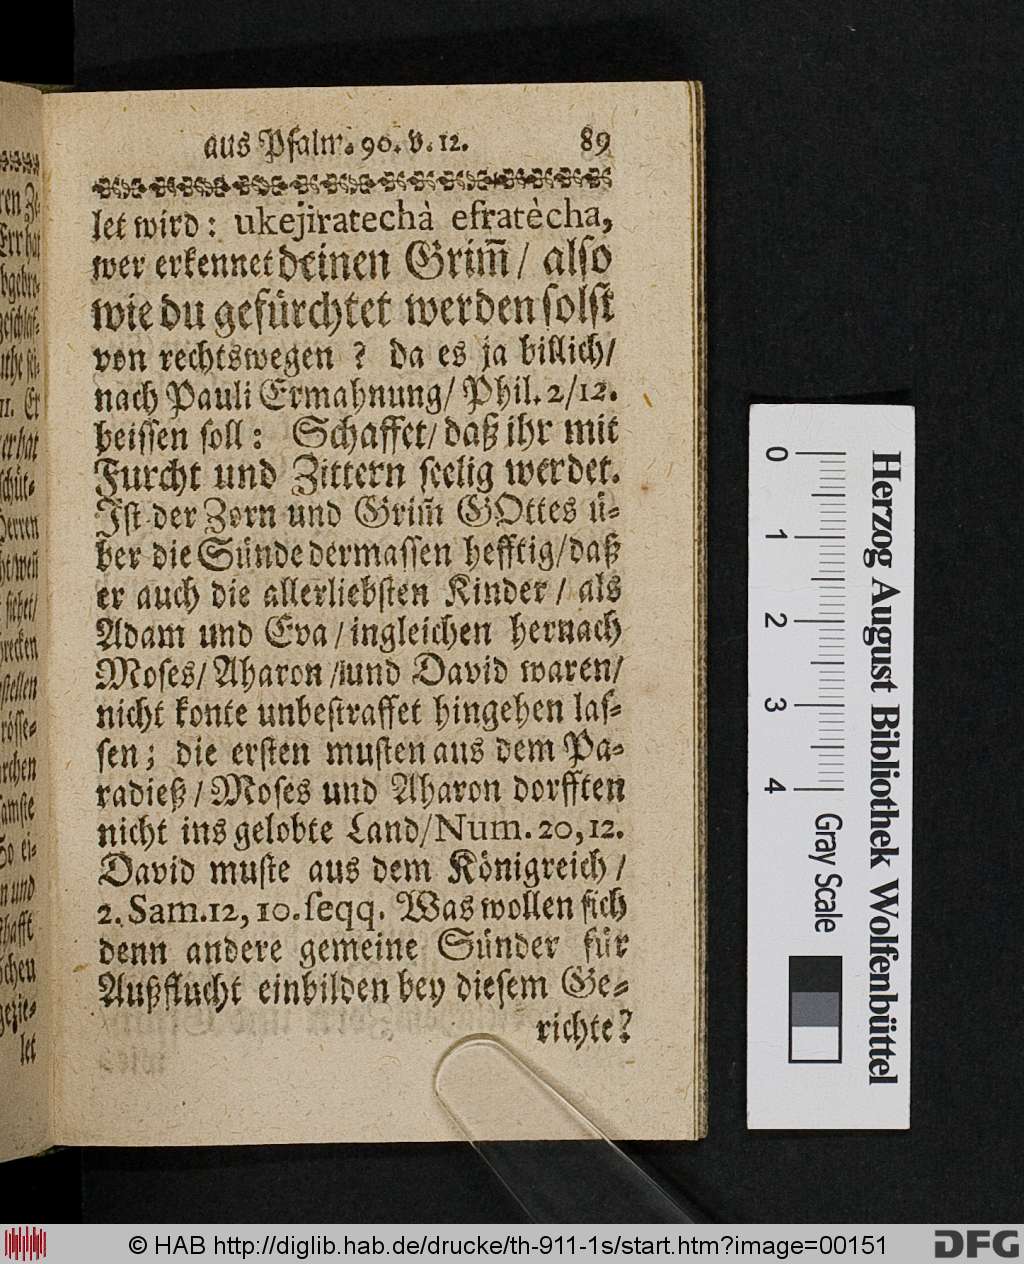 aus Psalm. 90. v. 12. 89
let wird: ukejiratechà efratècha,
wer erkennet deinen Grim̃ / also
wie du gefürchtet werden solst
von rechtswegen ? da es ja billich/
nach Pauli Ermahnung/ Phil. 2/12.
heissen soll: Schaffet/ daß ihr mit
Furcht und Zittern seelig werdet.
Ist der Zorn und Grim̃ GOttes ü-
ber die Sünde dermassen hefftig/daß
er auch die allerliebsten Kinder / als
Adam und Eva / ingleichen hernach
Moses/ Aharon / und David waren/
nicht konte unbestraffet hingehen las-
sen; die ersten musten aus dem Pa-
radieß / Moses und Aharon dorfften
nicht ins gelobte Land/Num. 20, 12.
David muste aus dem Königreich /
2. Sam. 12, 10. seqq. Was wollen sich
denn andere gemeine Sünder für
Außflucht einbilden bey diesem Ge-
richte?
ren
Err hat
er hat
Herren
siehet/
stellen
samste
So ei-
n und
let
0 1 2 3 4
Gray Scale
Herzog August Bibliothek Wolfenbüttel
© HAB http://diglib.hab.de/drucke/th-911-1s/start.htm?image=00151
DFG